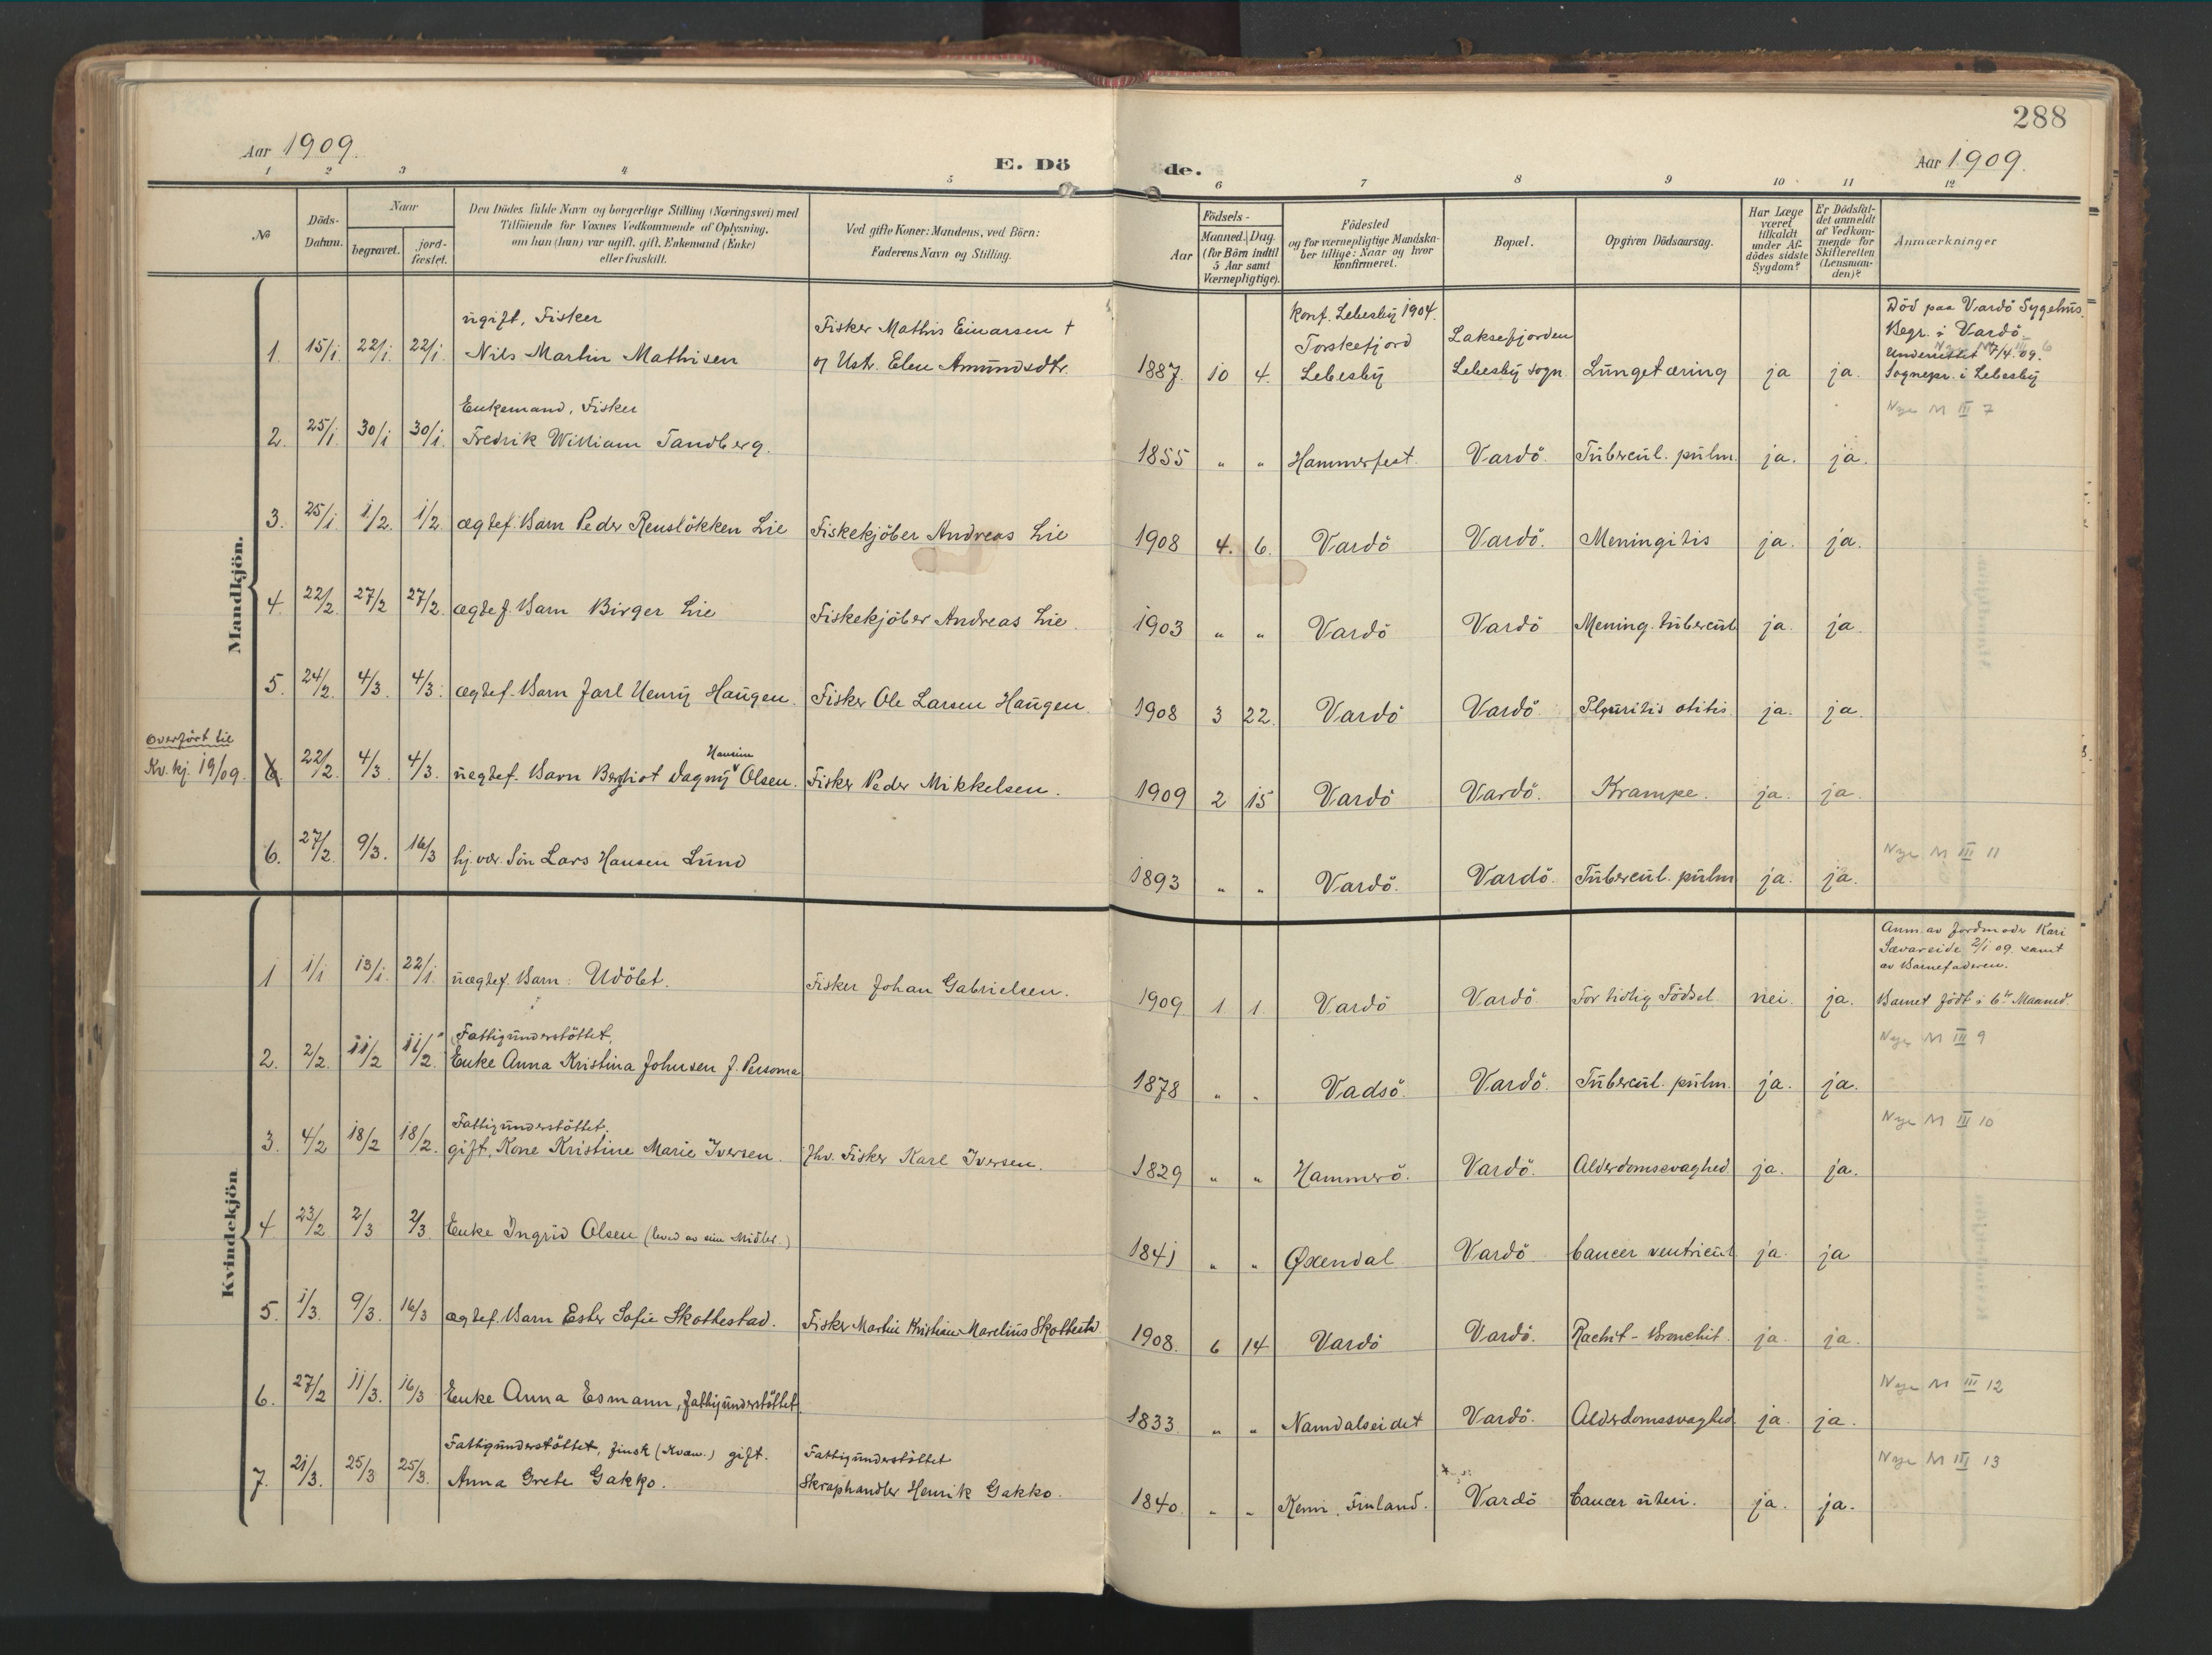 288
Aar 1909.
E. Dö
de.
Aar 1909.
1 2 3 4 5 6 7 8 9 10 11 12
No
Döds-
Datum.
Naar
begravet.
jord-
fæstet.
Den Dödes fulde Navn og borgerlige Stilling (Næringsvei) med
Tilföiende for Voxnes Vedkommende af Oplysning,
om han (hun) var ugift, gift, Enkemand (Enke)
eller fraskilt.
Ved gifte Koner: Mandens, ved Börn:
Faderens Navn og Stilling.
Födsels-
Aar
Maaned. Dag.
(for Börn indtil
5 Aar samt
Værnepligtige).
Födested
og for værnepligtige Mandska-
ber tillige: Naar og hvor
konfirmeret.
Bopæl.
Opgiven Dödsaarsag.
Har Læge
været
tilkaldt
under Af-
dödes sidste
Sygdom?
Er Dödsfal-
det anmeldt
af Vedkom-
mende for
Skifteretten
(Lensman-
den)?
Anmærkninger
Mandkjön.
ugift, Fisker
Fisker Mathis Einarsen †
konf. Lebesby 1904.
Laksefjorden
Död paa Vardö Sygehus.
Begr. i Vardö
Underrettet 7/4 09.
Sognepr. i Lebesby
1. 15/1 22/1 22/1 Nils Martin Mathisen og Ustr. Elen Amundsdtr. 1887. 10 4. Torskefjord
Lebesby Lebesby sogn. Lungetæring ja ja.
Enkemand, Fisker
Nye M III 7
2. 25/1 30/1 30/1 Fredrik William Tandberg. 1855 " " Hammerfest. Vardö. Tubercul. pulm. ja. ja.
3. 25/1 1/2. 1/2 ægtef. Barn Peder Rensløkken Lie Fiskekjöber Andreas Lie 1908 4. 6. Vardö Vardö. Meningitis ja. ja.
4. 22/2. 27/2 27/2. ægtef. Barn Birger Lie Fiskekjöber Andreas Lie. 1903 " " Vardö Vardö Mening. tubercul. ja. ja.
5. 24/2. 4/3. 4/3. ægtef. Barn Jarl Henry Haugen. Fisker Ole Larsen Haugen. 1908 3 22. Vardö Vardö. Pleuritis otitis ja. ja.
Overfört til
Kv. kj. 19/09.
6. 22/2. 4/3. 4/3. uegtef. Barn Bergliot Dagny Olsen. Fisker Peder Mikkelsen. 1909 2 15 Vardö Vardö. Krampe. ja. ja.
6. 27/2. 9/3. 16/3 hj. vær. Sön Lars Hansen Lund 1893 " " Vardö. Vardö. Tubercul. pulm ja. ja.
Nye M III 11
Kvindekjön
Anm. av Jordmoder Kari
Sævareide 2/1 09. samt
av Barnefaderen.
1 1/1 13/1. 22/1. uægtef. Barn: Udöbt. Fisker Johan Gabrielsen. 1909 1. 1. Vardö Vardö. For tidlig Födsel. nei. ja. Barnet födt i 6te Maaned.
Fattigunderstöttet,
Nye M III 9
2. 2/2. 11/2 11/2. Enke Anna Kristina Johnsen f. Persona 1878 " " Vadsö. Vardö. Tubercul. pulm. ja. ja.
Fattigunderstöttet.
Nye M III 10
3. 4/2 18/2 18/2. gift, Kone Kristine Marie Iversen. Fhv. Fisker Karl Iversen. 1829 " " Hammerö. Vardö. Alderdomssvaghed ja. ja.
4 23/2 2/3 2/3. Enke Ingrid Olsen (leved av sine Midler.) 1841 " " Øxendal Vardö Cancer ventricul. ja. ja
5. 1/3. 9/3. 16/3 ægtef. Barn Ester Sofie Skottestad. Fisker Martin Kristian Marelius Skottestad 1908. 6 14 Vardö Vardö. Rachit - Bronchit. ja. ja.
6. 27/2 11/3. 16/3 Enke Anna Esmann, fattigunderstöttet. 1833. " " Namdalseidet Vardö. Alderdomssvaghed. ja. ja.
Nye M III 12
Fattigunderstöttet, finsk (Kvæn.) gift.
Fattigunderstöttet
Nye M III 13
7. 21/3. 25/3 25/3. Anna Grete Gakko. Skraphandler Henrik Gakko. 1840. " " Kemi, Finland. Vardö Cancer uteri. ja. ja.